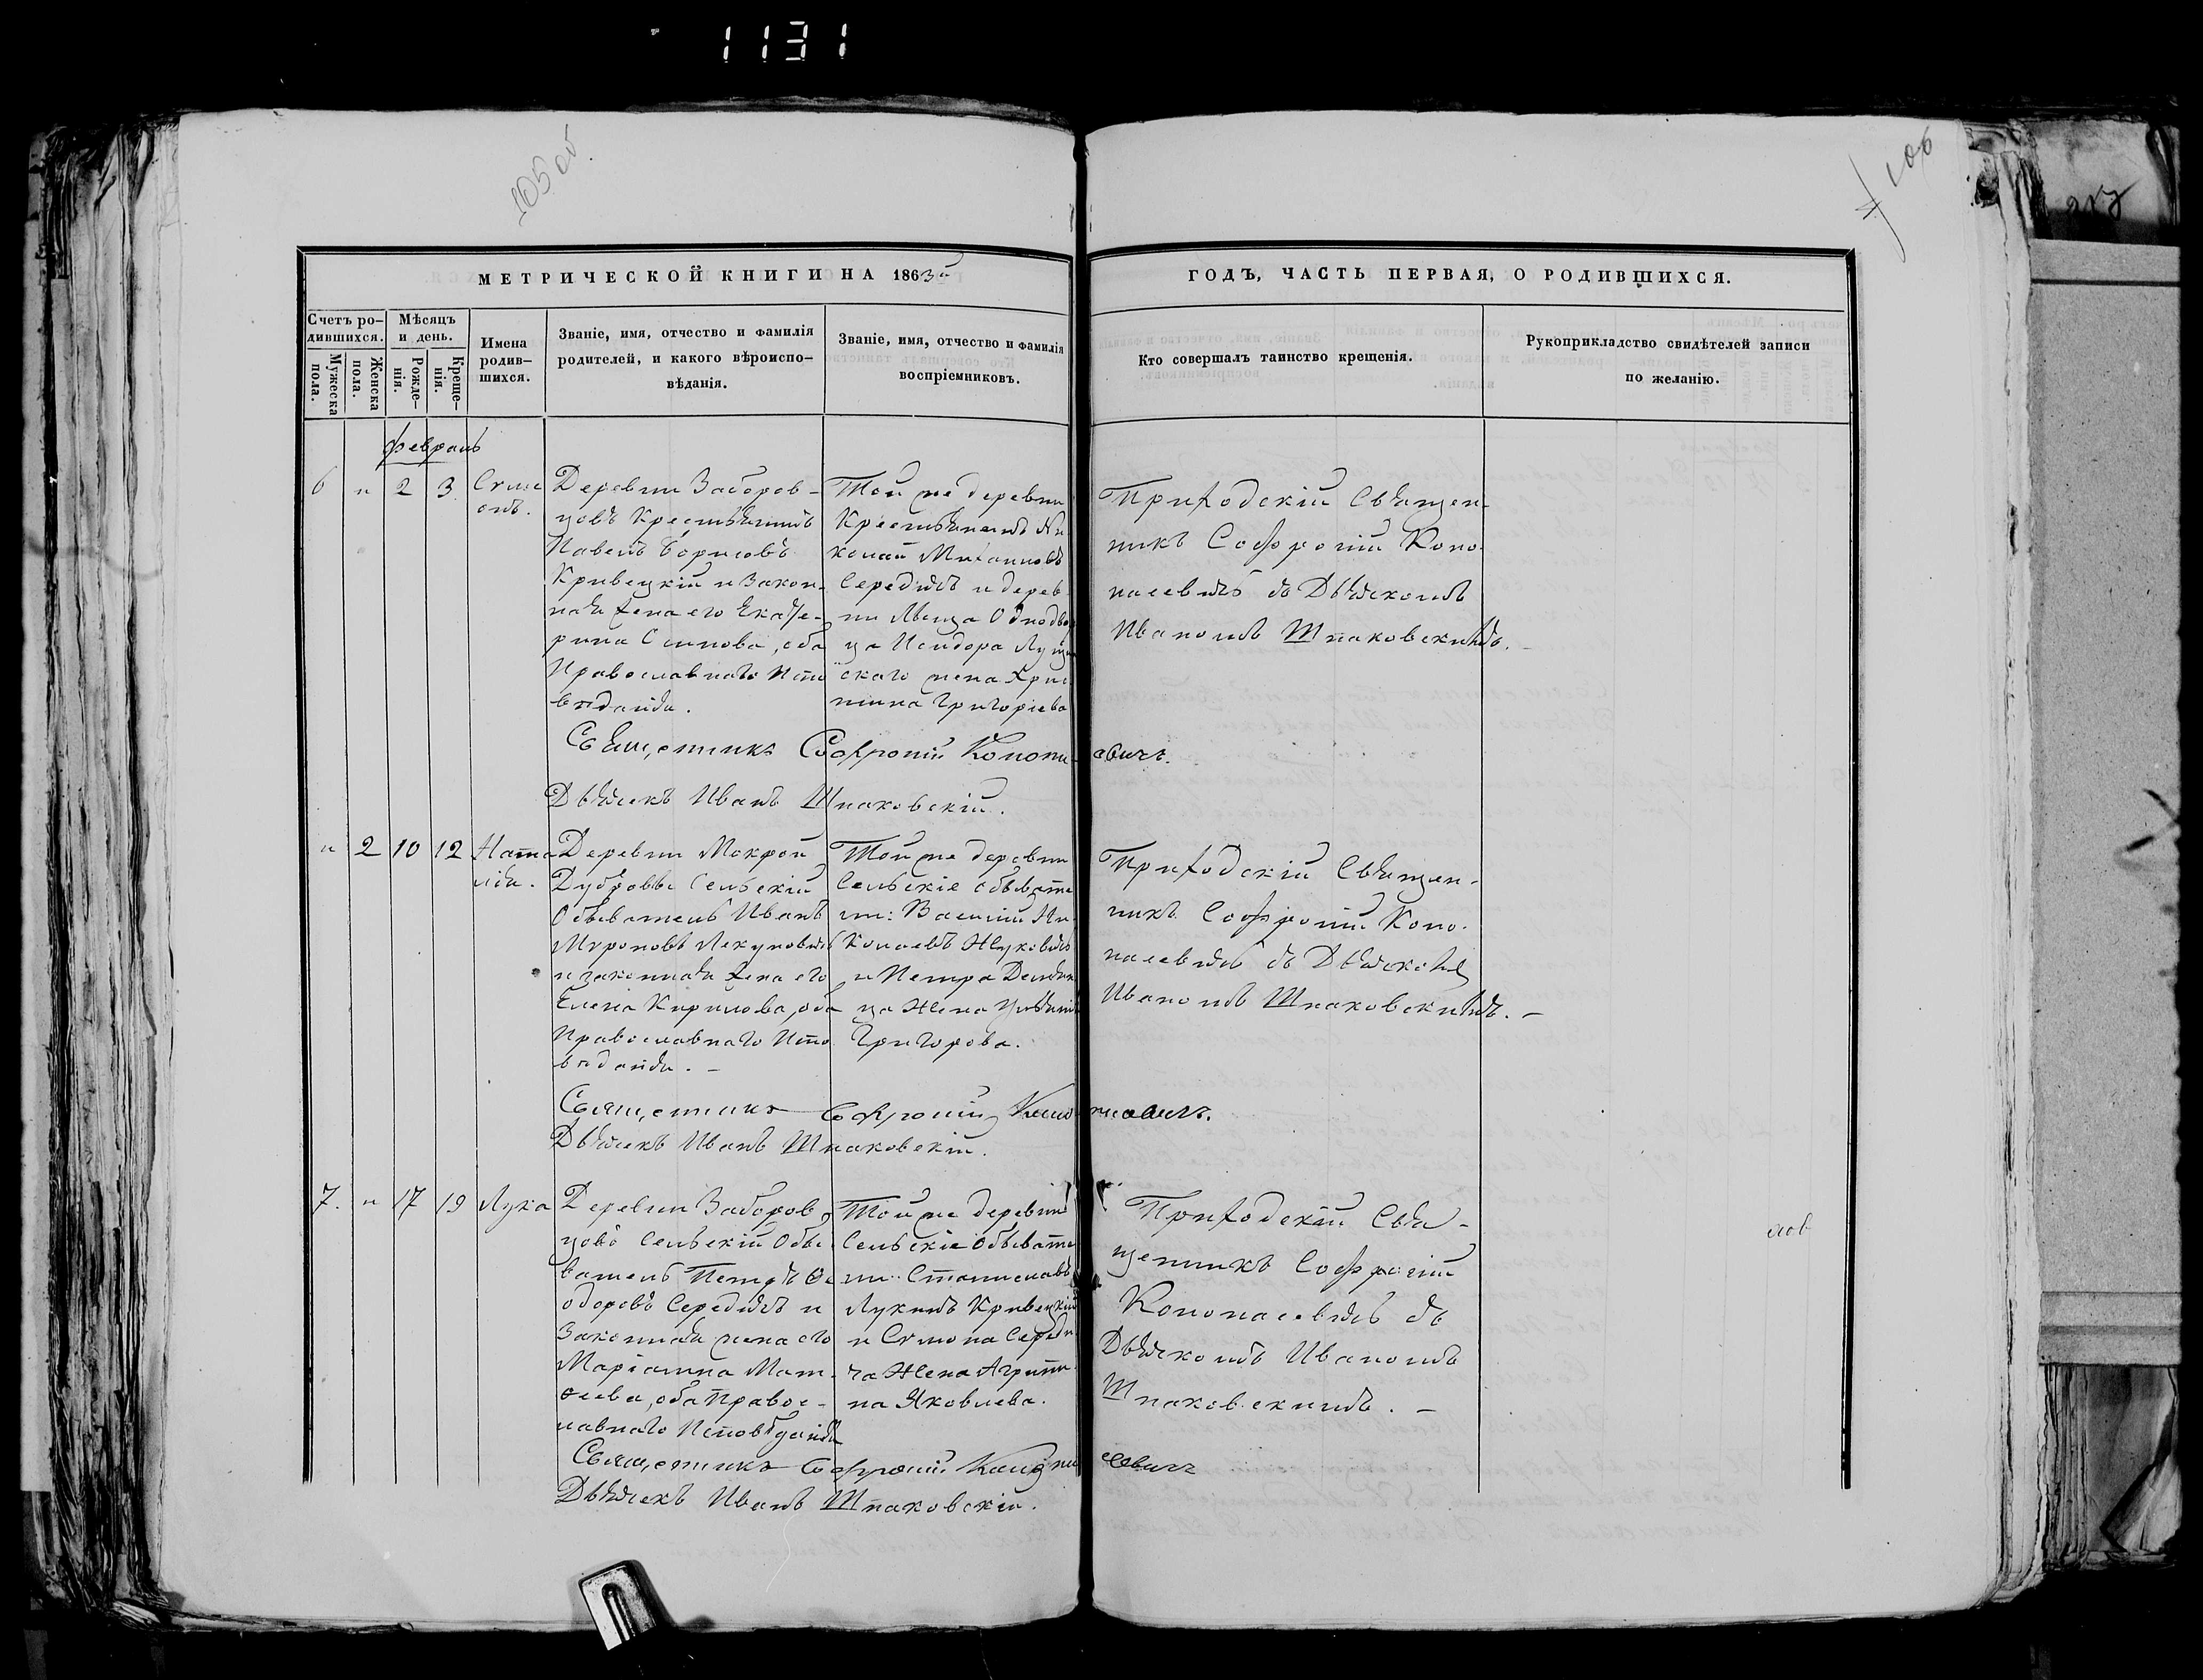 1131
105 об.
106
МЕТРИЧЕСКОЙ КНИГИ НА 1863й
ГОДЪ, ЧАСТЬ ПЕРВАЯ, О РОДИВШИХСЯ.
Счетъ ро-
дившихся.
Мужеска пола.
Женска пола.
Мѣсяцъ
и день.
Рожде-
нія.
Креще-
нія.
Имена
родив-
шихся.
Званіе, имя, отчество и фамилія
родителей, и какого вѣроиспо-
вѣданія.
Званіе, имя, отчество и фамилія
воспріемниковъ.
Кто совершалъ таинство крещенія.
Рукоприкладство свидѣтелей записи
по желанію.
Февраль
6 „ 2 3.
Симе
онъ.
Деревни Заборов-
цовъ Крестьянинъ
Павелъ Борисовъ
Кривецкій и закон-
ная жена его Екате-
рина , оба
Православнаго Испо
вѣданія.
Той же деревни
Крестьянинъ Ни
колай Михаиловъ
Середичъ и дерев
ни Однодвор
ца Исидора
скаго жена Хрис
тина Григоріева
Приходскій Священ-
никъ Софроній Коно-
пасевичъ съ Дьячкомъ
Иваномъ Шпаковскимъ.
Священникъ Софроній Конопасевичъ.
Дьячекъ Иванъ Шпаковскій.
„ 2 10 12
Ната
лія.
Деревни Мокрой
Дубровы Сельскій
Обыватель Иванъ
Мироновъ Лекуновичъ
и законная жена его
Елена Кирилова, оба
Православнаго Испо
вѣданія. –
Той же деревни
Сельскіе обывате
ли: Василій Ни
колаевъ Жуковичъ
и Петра
ца жена Ульянія
Григорова.
Приходскій Священ-
никъ Софроній Коно-
пасевичъ съ Дьячкомъ
Иваномъ Шпаковскимъ. –
Священникъ Софроній Конопасевичъ.
Дьячекъ Иванъ Шпаковскій.
7. „ 17 19
Лука
Деревни Заборов
цовъ Сельскій Обы
ватель Петръ Ѳе
одоровъ Середичъ и
Законная жена его
Маріанна Мат-
ѳеева, оба Правос-
лавнаго Исповѣданія
Той же деревни
Сельскіе Обывате
ли: Станиславъ
Лукинъ Кривецкій
и Симона Середи
ча Жена Агрипи
на Яковлева.
Приходскій Свя-
щенникъ Софроній
Конопасевичъ съ
Дьячкомъ Иваномъ
Шпаковскимъ. –
Священникъ Софроній Конопасевичъ
Дьячекъ Иванъ Шпаковскій.